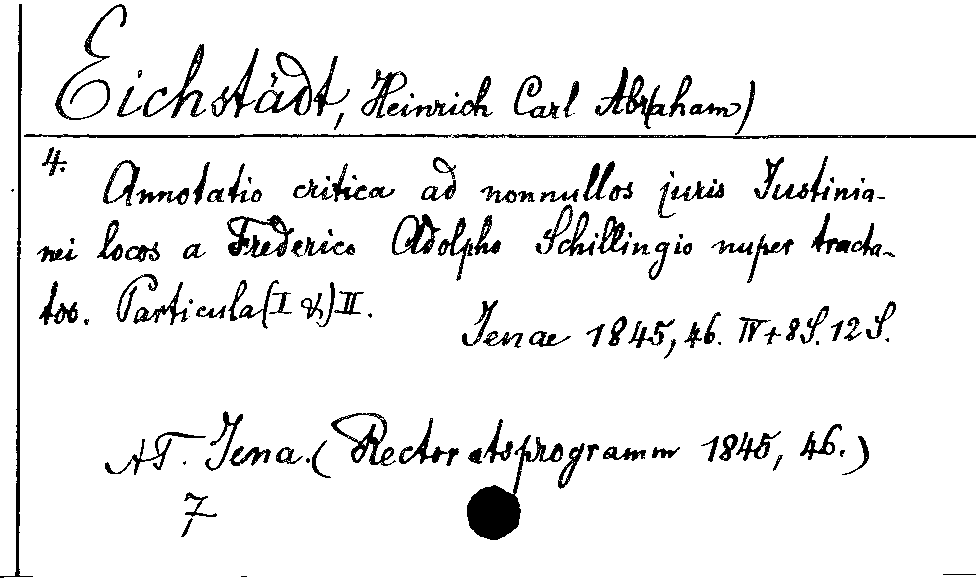 Eichstädt, Heinrich Carl Abr(aham)
4.
Annotatio critica ad nonnullos juris Justinia-
nei locos a Frederico Adolpho Schillingio nuper tracta-
tos. Particula (I &) II.
Jenae 1845, 46. IV + 8 S. 12 S.
AT. Jena. (Rectoratsprogramm 1845, 46.)
7